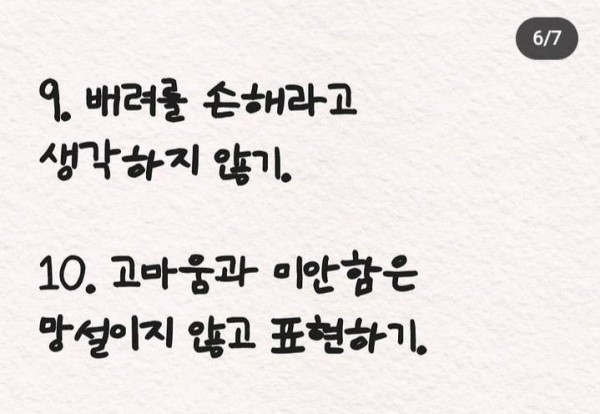 6/7
9. 배려를 손해라고
생각하지 않기.
10. 고마움과 미안함은
망설이지 않고 표현하기.